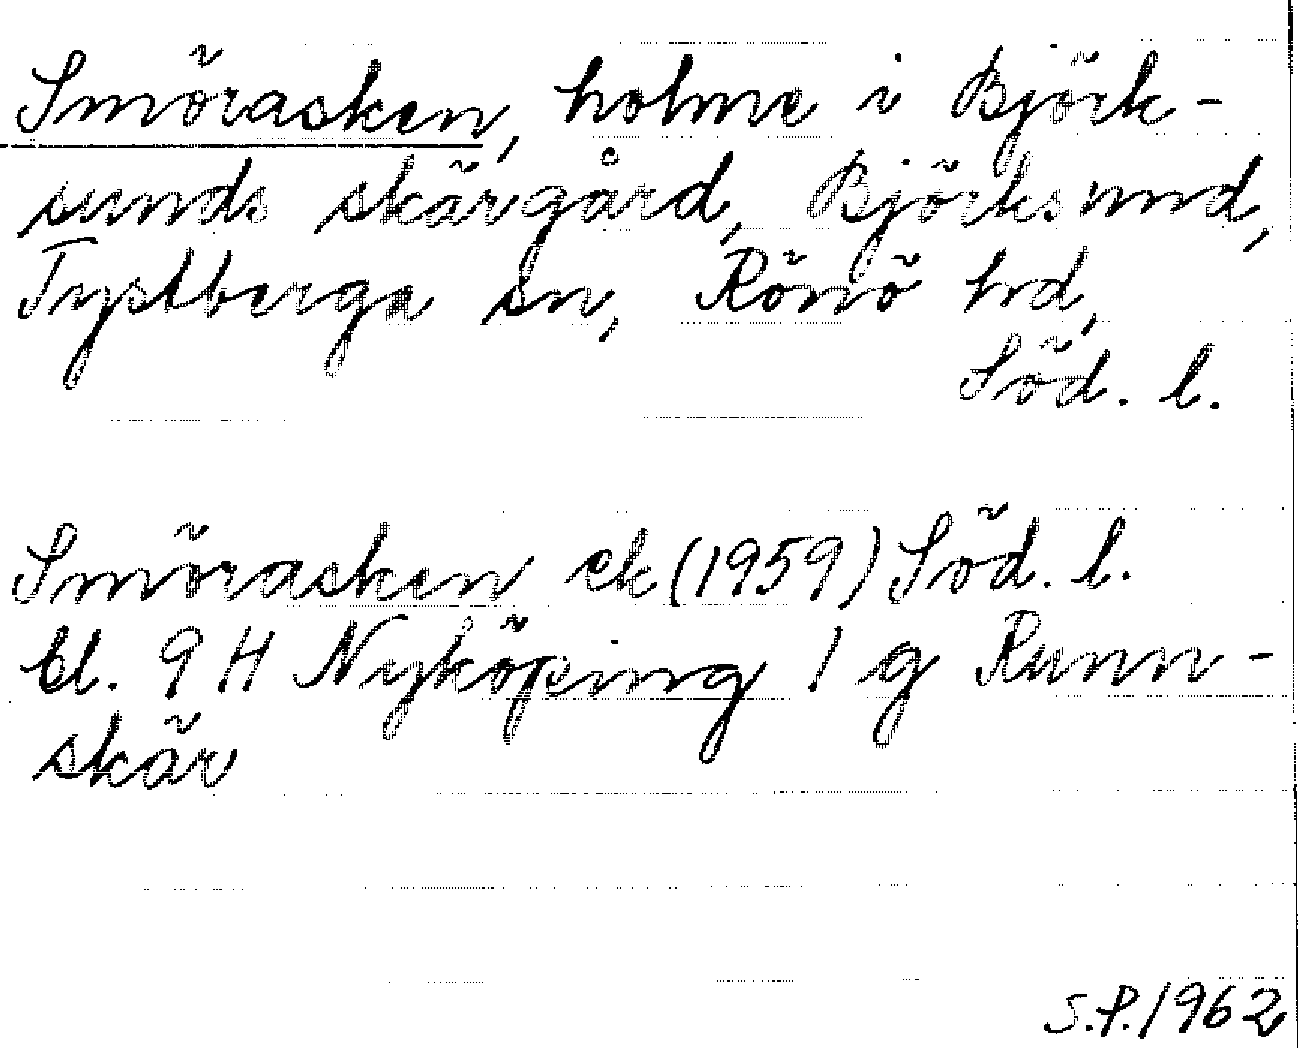 Smörasken, holme i Björk-
sunds skärgård, Björksund,
Tystberga sn, Rönö hd,
Söd. l.
Smörasken ek (1959) Söd. l.
bl. 9 H Nyköping 1 g Runn-
skär
S.P. 1962